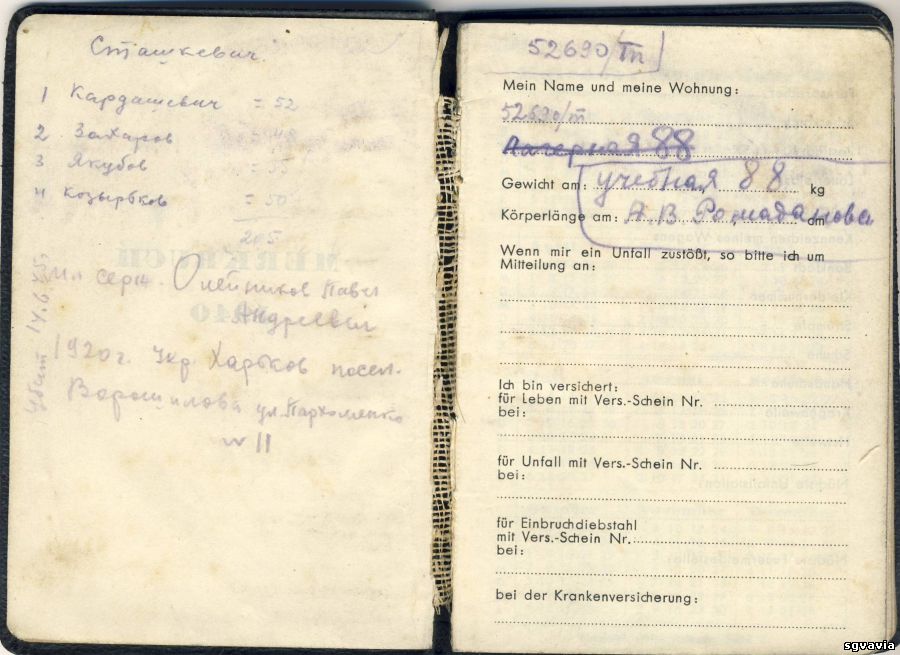 Сташкевич.
1 Кардашевич = 52
2 Захаров
3 Якубов
4 Козырбков = 50
205
Мл серж. Олейников Павел
Андреевич
1920 г. Укр Харьков посел.
Ворошилова ул. Пархоменко
№ 11
Убит 14.9.43
52690/m
Mein Name und meine Wohnung:
52690/m
Лагерная 88
Gewicht am: учебная 88 kg
Körperlänge am: А.В Ромаданова cm
Wenn mir ein Unfall zustößt, so bitte ich um
Mitteilung an:
Ich bin versichert:
für Leben mit Vers.-Schein Nr.
bei:
für Unfall mit Vers.-Schein Nr.
bei:
für Einbruchdiebstahl
mit Vers.-Schein Nr.
bei:
bei der Krankenversicherung:
sgvavia